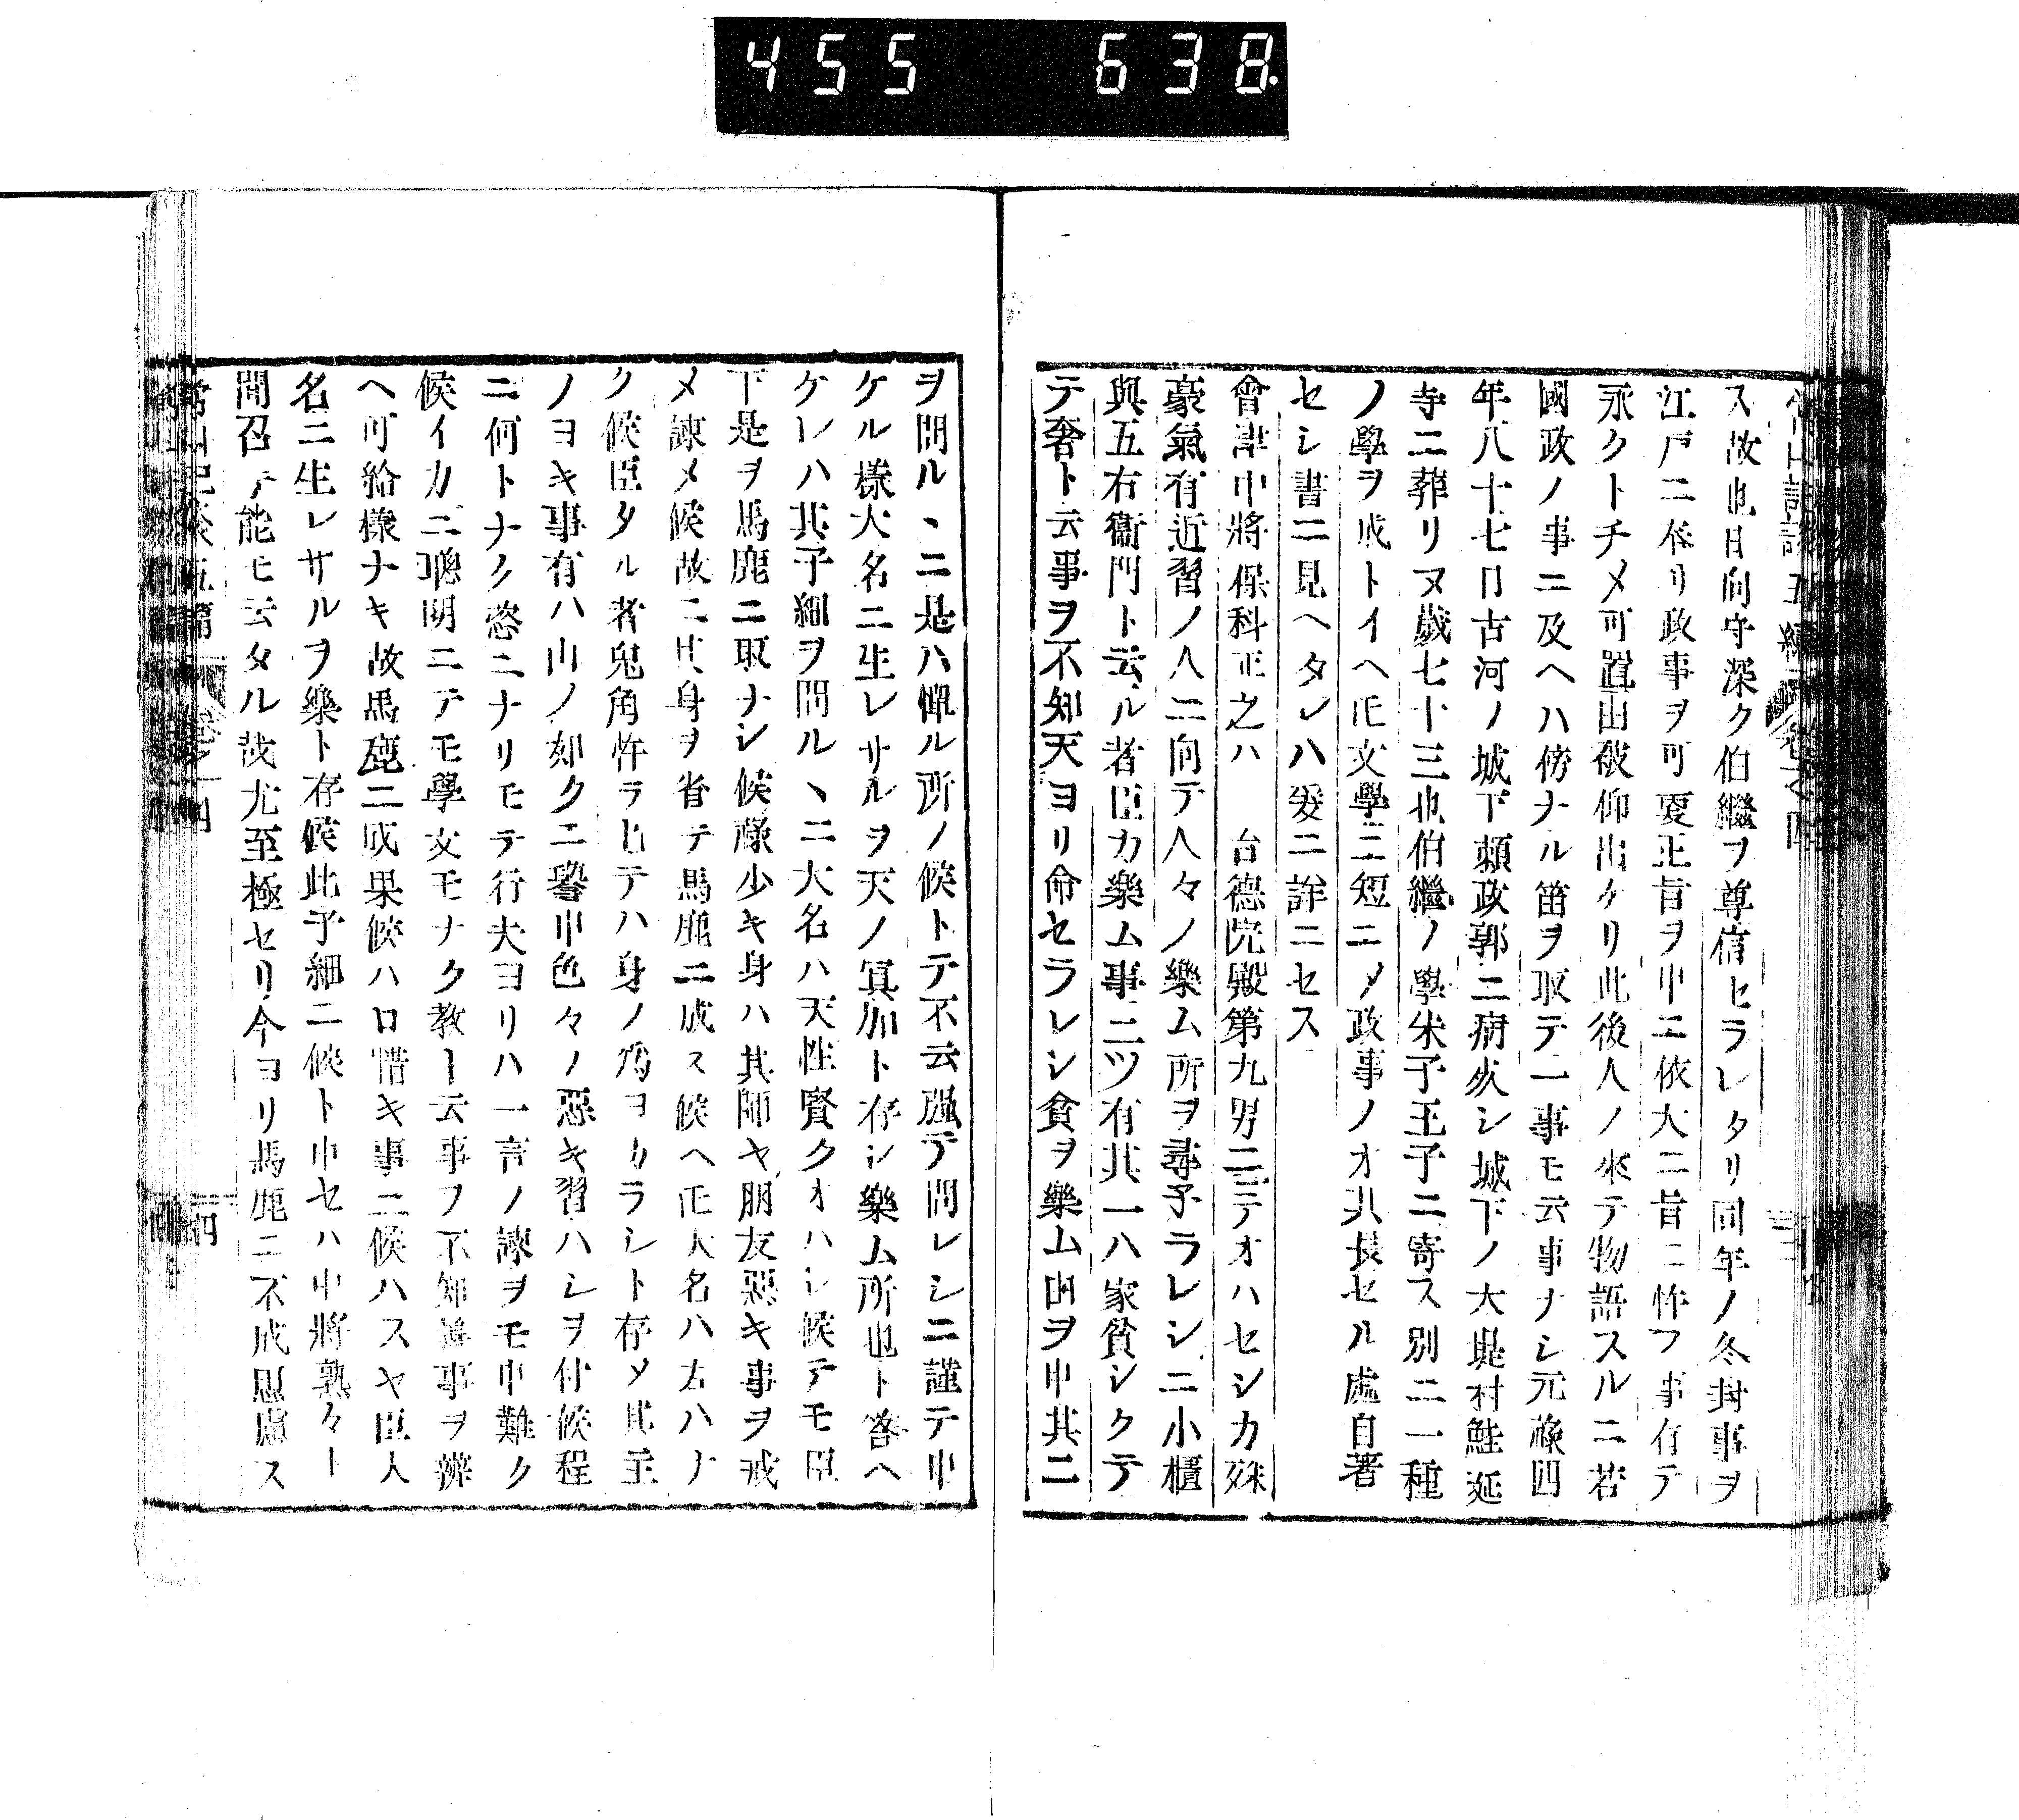 455 638.
ス故也日向守深ク伯繼ヲ尊信セラレタリ同年ノ冬封事ヲ
江戸ニ奉リ政事ヲ可更正旨ヲ申ニ依大ニ旨ニ忤フ事有テ
永クトチメ可置由被仰出ケリ此後人ノ來テ物語スルニ若
國政ノ事ニ及ヘハ傍ナル笛ヲ取テ一事モ云事ナシ元祿四
年八十七日古河ノ城下頼政郭ニ病死シ城下ノ大堤村鮭延
寺ニ葬リヌ歲七十三也伯繼ノ學朱子王子ニ寄ス別ニ一種
ノ學ヲ成トイヘ𪜈文學ニ短ニメ政事ノオ其長セル處自著
セシ書ニ見ヘタレハ爰ニ詳ニセス
會津中將保科正之ハ 台德院殿第九男ニテオハセシカ殊
豪氣有近習ノ人ニ向テ人々ノ樂ム所ヲ尋予ラレシニ小櫃
與五右衞門ト云ル者臣カ樂ム事ニツ有其一ハ家貧シクテ
テ奢ト云事ヲ不知天ヨリ命セラレシ貧ヲ樂ム由ヲ申其二
ヲ問ルヽニ是ハ憚ル所ノ候トテ不云强テ問レシニ謹テ申
ケル樣大名ニ生レサルヲ天ノ冥加ト存シ樂ム所也ト答ヘ
ケレハ其子細ヲ問ルヽニ大名ハ天性賢クオハシ候テモ臣
下是ヲ馬鹿ニ取ナシ候祿少キ身ハ其師ヤ朋友惡キ事ヲ戒
メ諫メ候故ニ其身ヲ省テ馬鹿ニ成ス候ヘ𪜈大名ハ左ハナ
ク候臣タル者兒角忤ラヒテハ身ノ爲ヨカラシト存メ其主
ノヨキ事有ハ山ノ如クニ譽申色々ノ惡キ習ハシヲ付候程
ニ何トナク恣ニナリモテ行夫ヨリハ一言ノ諫ヲモ申難ク
候イカニ聰明ニテモ學文モナク敎ト云事ヲ不知善事ヲ辨
ヘ可給樣ナキ故馬鹿ニ成果候ハロ惜キ事ニ候ハスヤ臣大
名ニ生レサルヲ樂ト存候此子細ニ候ト申セハ中將熟々ト
聞召テ能モ云タル哉尤至極セリ今ヨリ馬鹿ニ不成思慮ス